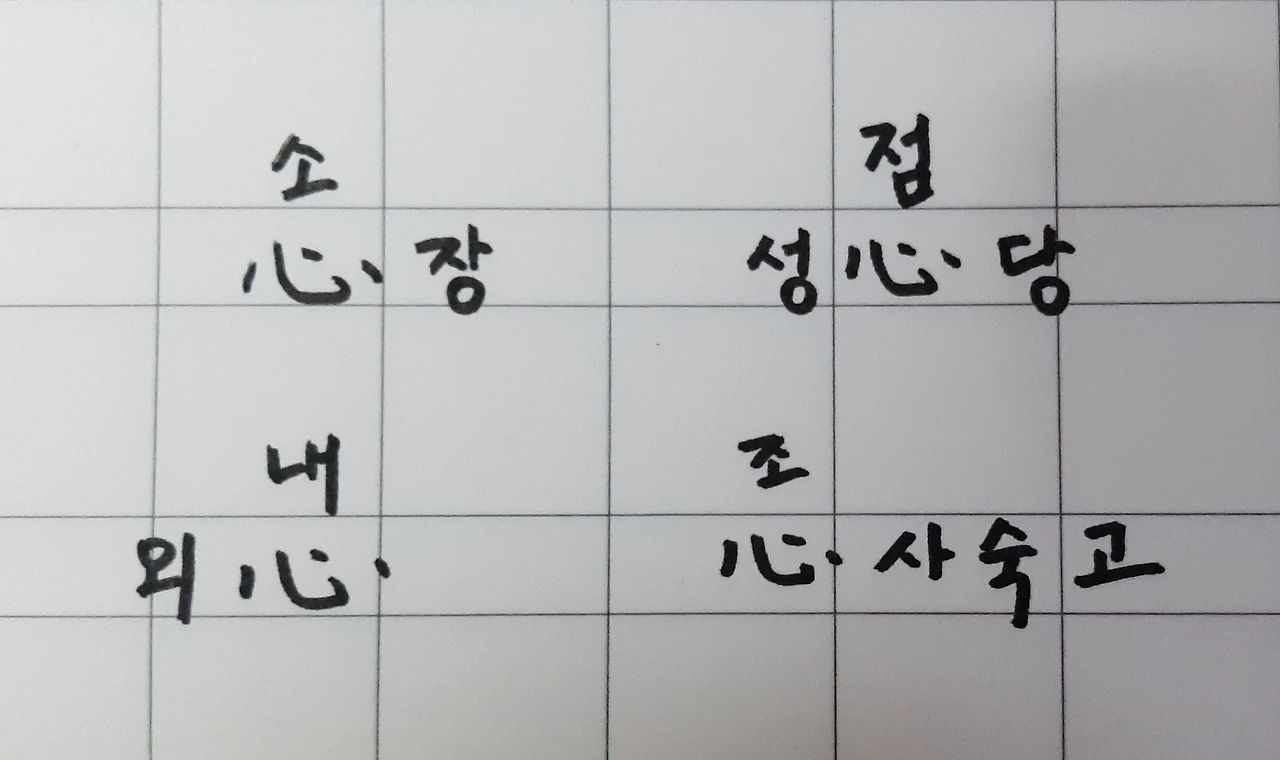 소 점
心 장 성 心 당
내 조
외 心 心 사 숙 고